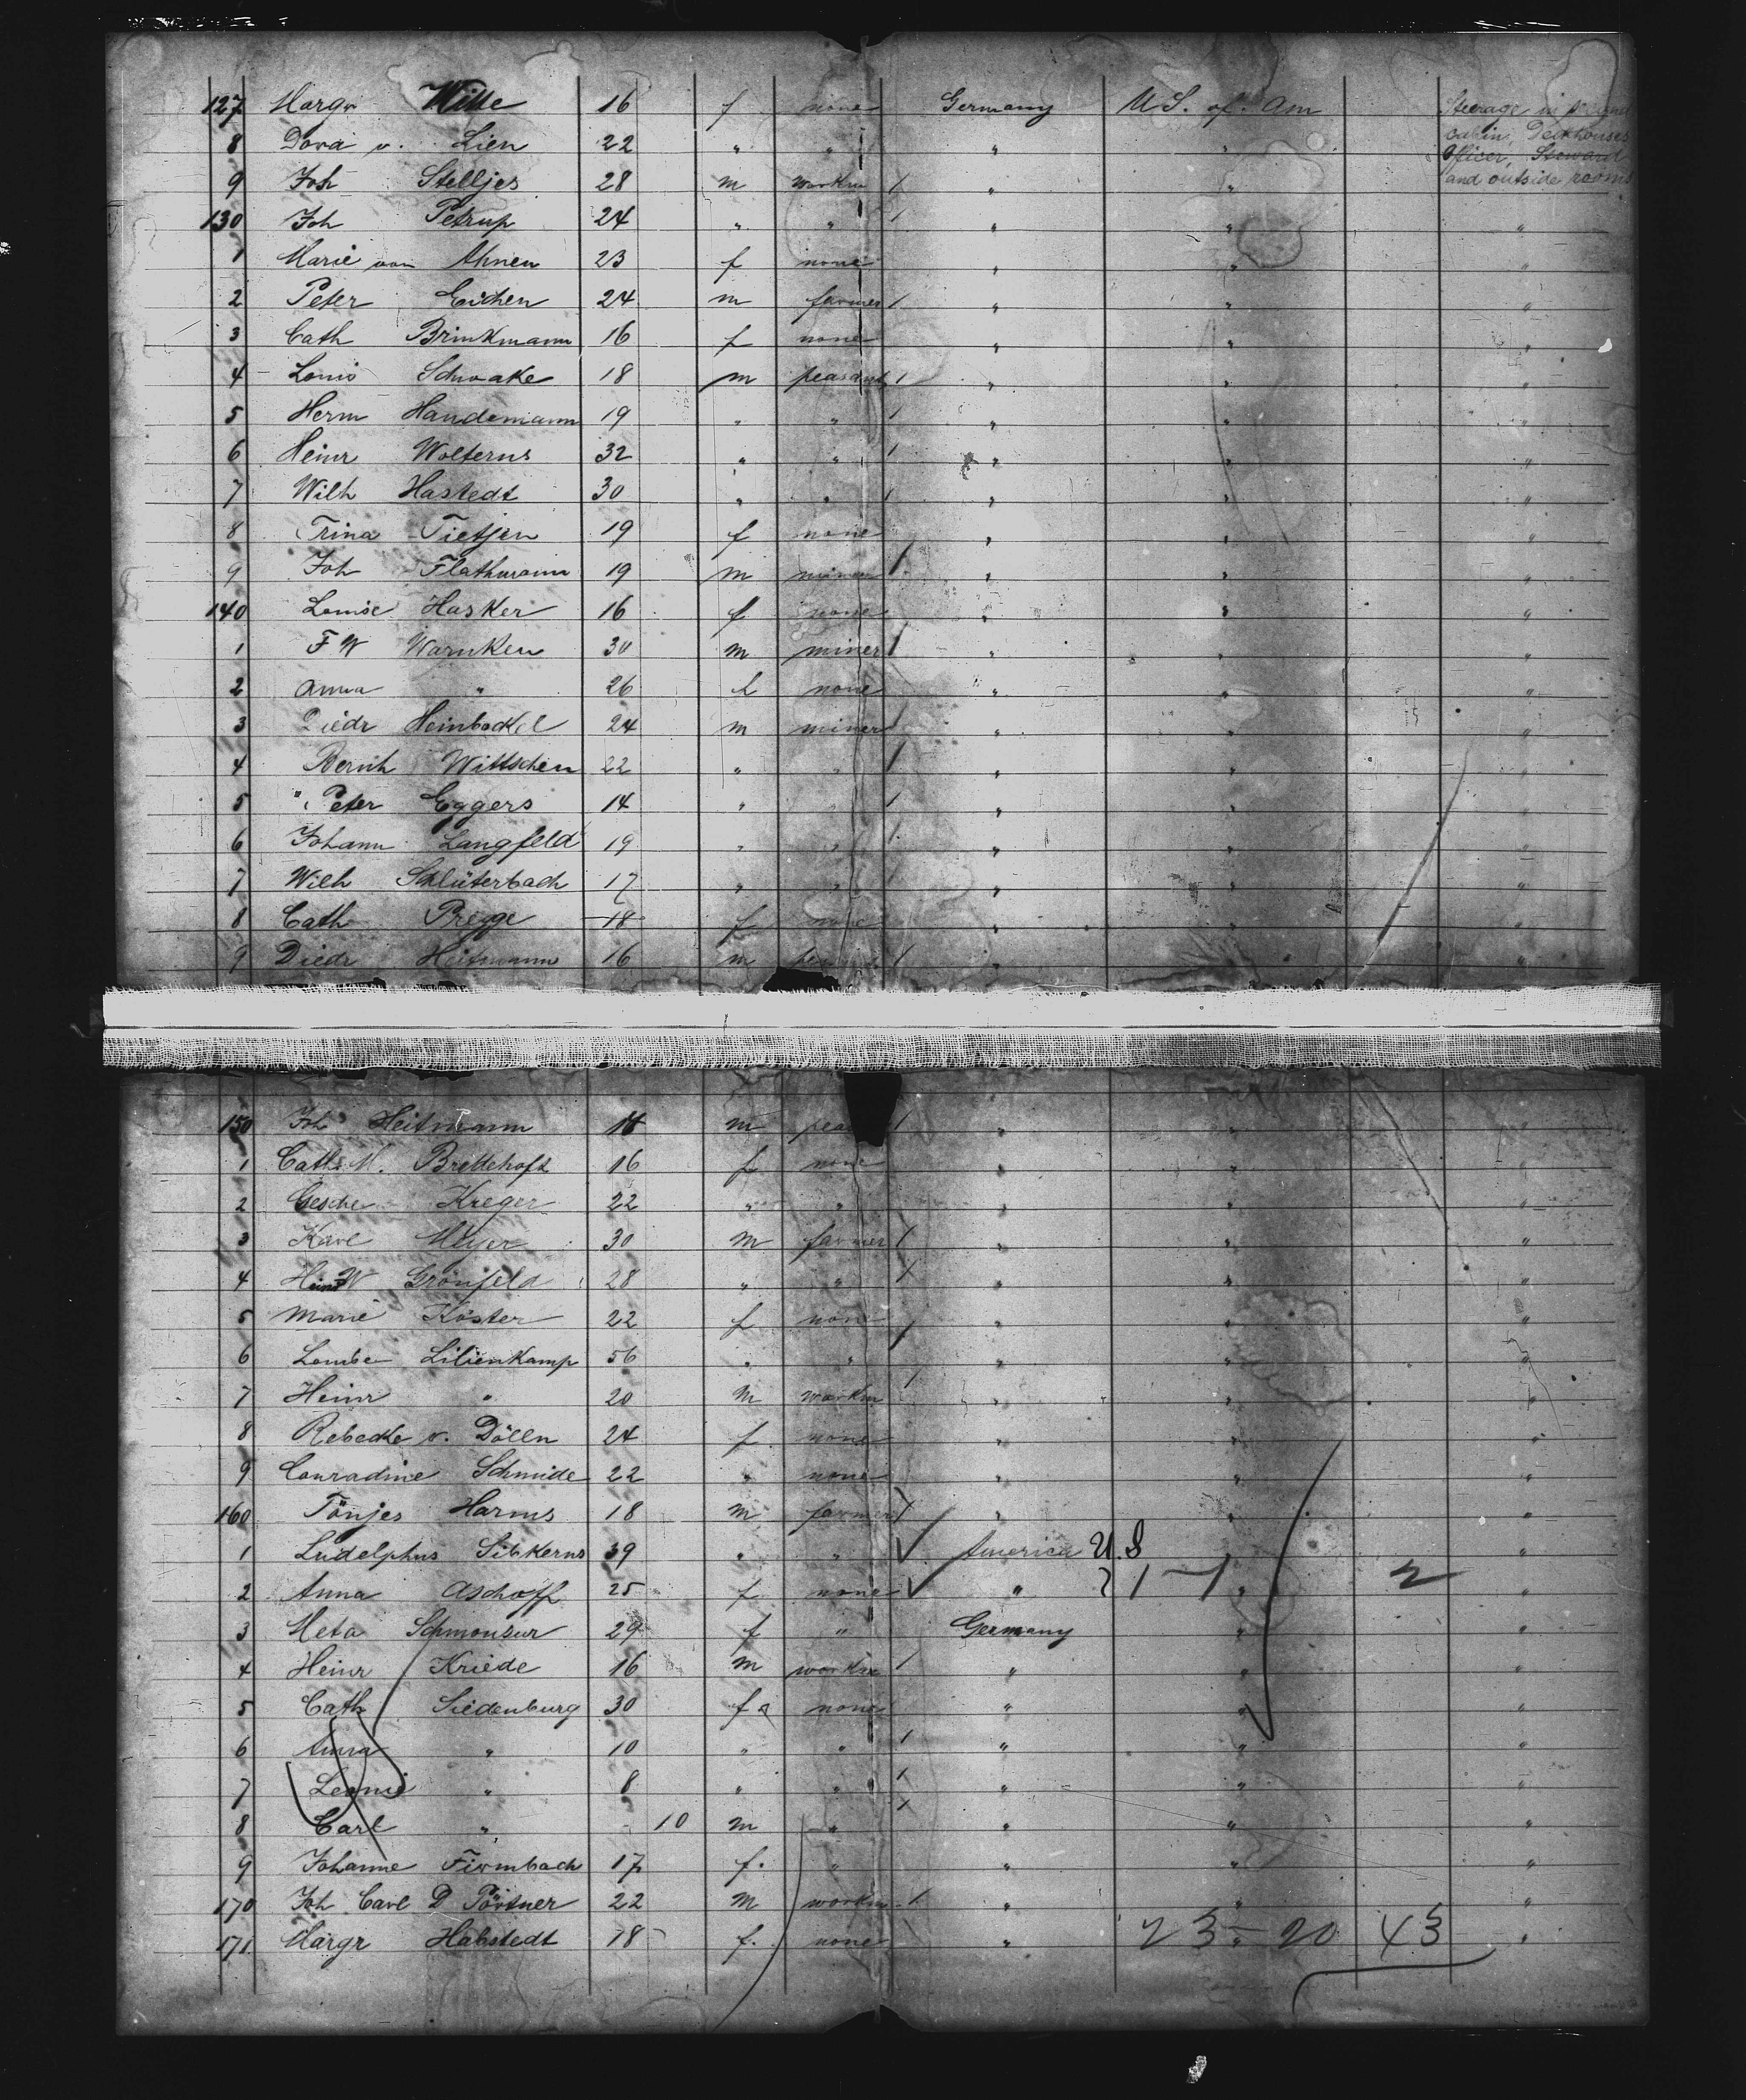 127 Margr Witte 16 f none Germany U.S. of. Am Steerage in second
cabin, Deckhouses
8 Dora v. Lien 22 " " " " Officer, Steward
9 Joh Stelljes 28 m workm 1 " " and outside rooms
130 Joh Petrup 24 " " 1 " " "
1 Marie von Ahnen 23 f none " " "
2 Peter Eichen 24 m farmer 1 " " "
3 Cath Brinkmann 16 f none " " "
4 Louis Schwake 18 m peasant 1 " " "
5 Herm Handemann 19 " " 1 " " "
6 Heinr Wolterns 32 " " 1 " " "
7 Wilh Hastedt 30 " " 1 " " "
8 Trina Tietjen 19 f none " " "
9 Joh Flathmann 19 m miner 1 " " "
140 Louise Hasker 16 f none " " "
1 F W Warnken 30 m miner 1 " " "
2 Anna " 26 f none " " "
3 Diedr Heinbockel 24 m miner 1 " " "
4 Bernh Wittschen 22 " " 1 " " "
5 Peter Eggers 14 " " 1 " " "
6 Johann Langfeld 19 " " 1 " " "
7 Wilh Schlüterbach 17 " " 1 " " "
8 Cath Prigge 18 f none " " "
9 Diedr Heitmann 16 m 1 " " "
150 Joh Heitmann m 1 " " "
1 Cath M. Brettehoft 16 f none " " "
2 Gesche Kreger 22 " " " " "
3 Karl Meyer 30 m farmer 1 " " "
4 Heinr W Grönfeld 28 " " 1 " " "
5 Marie Köster 22 f none " " "
6 Louise Lilienkamp 56 " " " " "
7 Heinr " 20 m workm 1 " " "
8 Rebecke v. Dölln 24 f none " " "
9 Conradine Schmide 22 " none " " "
160 Tönjes Harms 18 m farmer 1 " " "
1 Ludolphus Sibkerns 39 " " America U.S "
2 Anna Aschoff 25 f none " 1 - 1 " 2 "
3 Meta 29 f " Germany " "
4 Heinr Kriede 16 m workm 1 " " "
5 Cath Siedenburg 30 f none " " "
6 Anna " 10 " " 1 " " "
7 Leonie " 8 " " 1 " " "
8 Carl " 10 m " 1 " " "
9 Johanne Firmbach 17 f. " " " "
170 Joh Carl D Pörtner 22 m workm 1 " " "
171 Margr Habstedt 18 f. none " 23 - 20 43 "